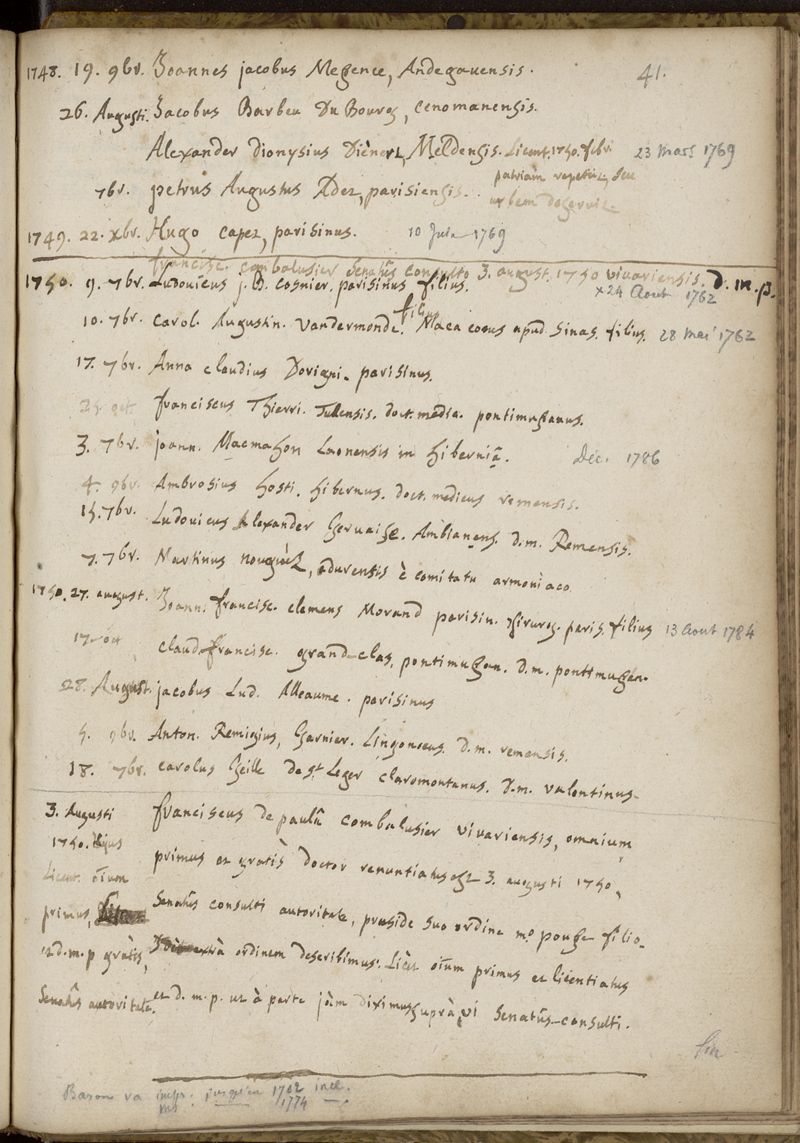 41.
1748. 19. 9br. Joannes jacobus Megence, Andegavensis.
26. Augusti. Jacobus Barbeu Du Bourg, Cenomanensis.
Alexander Dionysius Diènert, Meldensis. Licent. 1750. febr 23 Mars 1769
patriam repetiit, seu
7br. petrus Augustus Adet, parisiensis. urbem deseruit
1749. 22. xbr. Hugo Capet, parisinus. 10 Juin 1769
francisc. combalusier Senatûs consulto 3. august. 1750 vivariensis. D. M. p.
1750. 9. 7br. Ludovicus j. B. cosnier. parisinus filius. x 24 Aout 1762
10. 7br. Carol. Augustin. Vandermonde. filius Macaconus apud Sinas. filius. 28 Mai 1762
17. 7br. Anna claudius Dorigni. parisinus.
25 oct. franciscus Thierri. Tullensis. doct. medic. pontimussanus.
3. 7br. joann. Macmahon Laonensis in hiberniâ. Déc. 1786
4. 9br. Ambrosius hosti. hibernus. doct. medicus remensis.
15. 7br. Ludovicus Alexander Gervaise. Ambianens. D. m. Remensis.
7. 7br. Martinus nouguès, adurensis è comitatu armoniaco
1750. 27. august. Joann. francisc. clemens Morand parisin. chirurg. paris. filius 13 Aout 1784
17 oct claud. francisc. grand-clas, pontimussan. D. m. pontimussan.
28. August. jacobus Lud. Alleaume. parisinus
5. 9br. Anton. Remigius, Garnier. Lingonæus. D. m. remensis.
18. 7br. carolus Geille de St Leger claromontanus. D. m. valentinus
3. Augusti franciscus de paulâ combalusier vivariensis, omnium
1750. hujus primus et gratis doctor renuntiatus est 3. augusti 1750,
Licent. oîum
primus, Senatûs consulti autoritate, præside suo ordine mo. pousse filio.
et d. m. p gratis, extrà ordinem describimus. Licet. oîum primus et licentiatus
Senatûs autoritate. et D. m. p. ut à parte jàm diximus suprà, vi Senatûs-consulti.
fin
Baron va impr. jusqu'en 1752 incl.
ms 1774